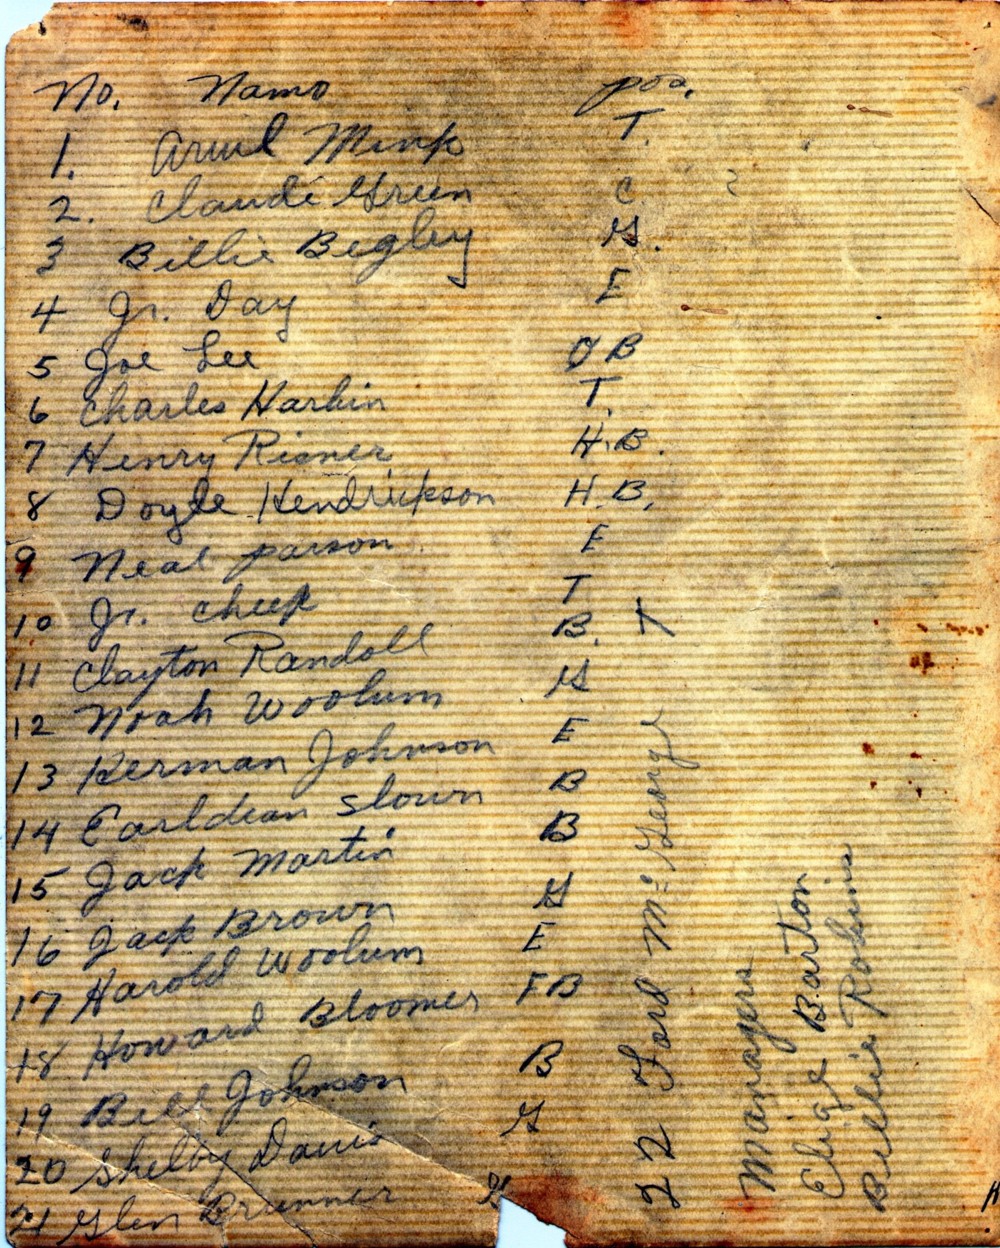 No. Name pos.
1. Arvil Mink T.
2. Claude Green C ?
3 Billie Begley G.
4 Jr. Day E
5 Joe Lee QB
6 Charles Harbin T.
7 Henry Risner H.B.
8 Doyle Hendrickson H.B.
9 Neal parson E
10 Jr. cheek T
11 Clayton Randall B. T
12 Noah Woolum G
13 Herman Johnson E
14 Earldean Slown B
15 Jack Martin B
16 Jack Brown G
17 Harold Woolum E
18 Howard Bloomer FB
19 Bill Johnson B
20 Shelby Davis G
21 Glen Brunner G
22 Ford Mc George
Managers
Elige Barton
Billie Robins